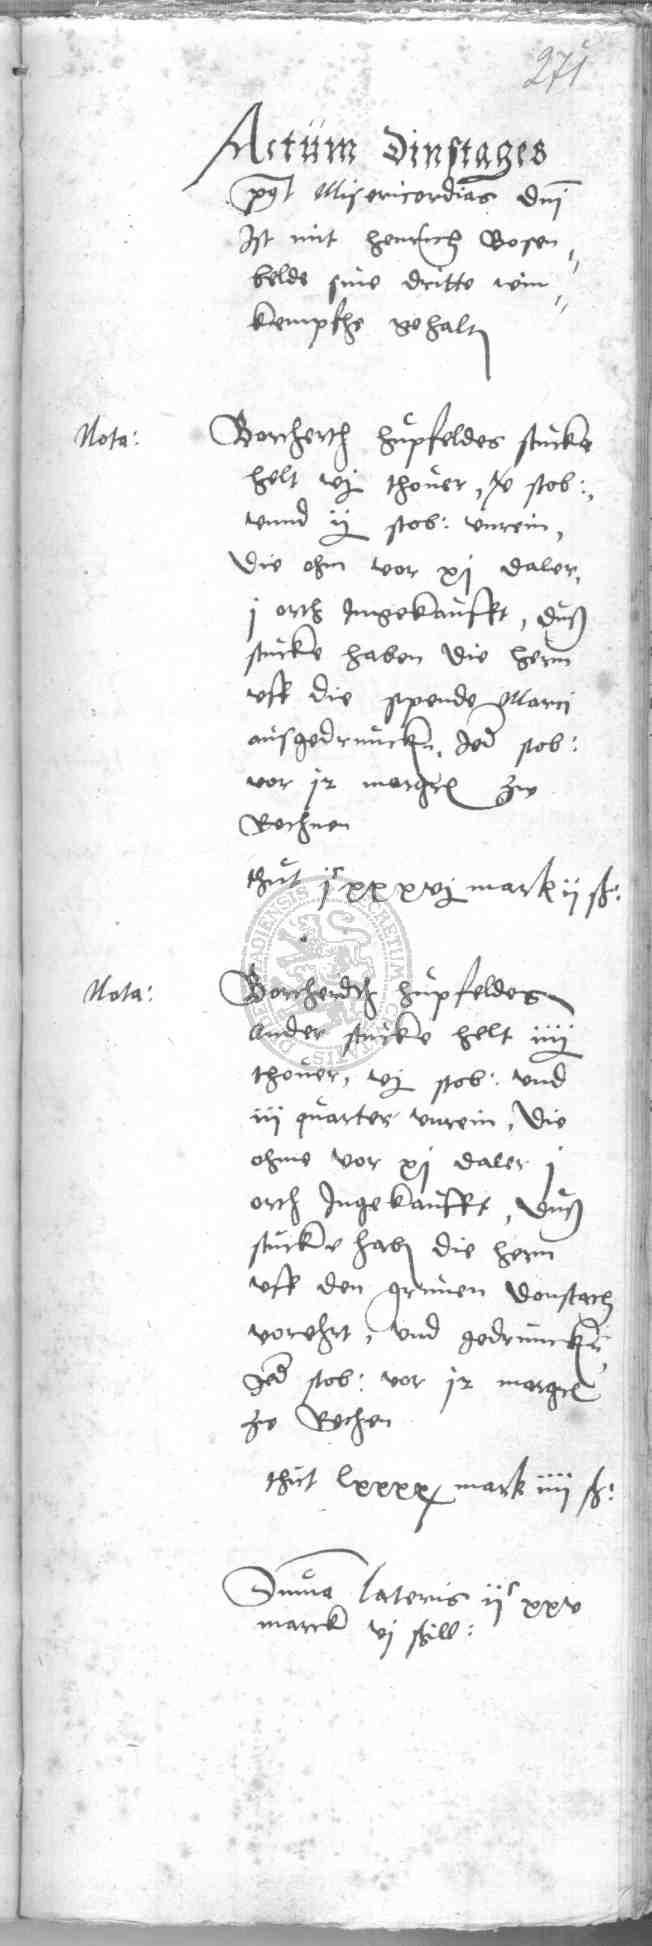 271
Actum Dinstages
post Misericordias dni
Ist mit henrich Rosen
belde sine dritte win
kempfhe gehalten
Nota: Borcherth hupfeldes stucke
helt vj thouer, stob:,
vnnd ij stob: vnrein,
die ohm vor xj daler,
j orth Ingekaufft, duß
stucke haben die hern
vff die spende Marci
ausgedruncken, Jed stob:
vor margr zw
Rechnen
thut jc xxxvj mark ij ß:
Nota: Borcherdth hupfeldes
ander stucke helt iiij
thouer, vj stob: vnd
iii quarter vnrein, die
ohme vor xj daler j
orth Ingekaufft, duß
stucke haben die hern
vff den grunen donstach
vorehrt, vnd gedruncken,
Jed stob: vor margr
zw Rechen
thut lxxxx mark iiij ß:
Suma lateris ijc xxv
marck vj ßill: